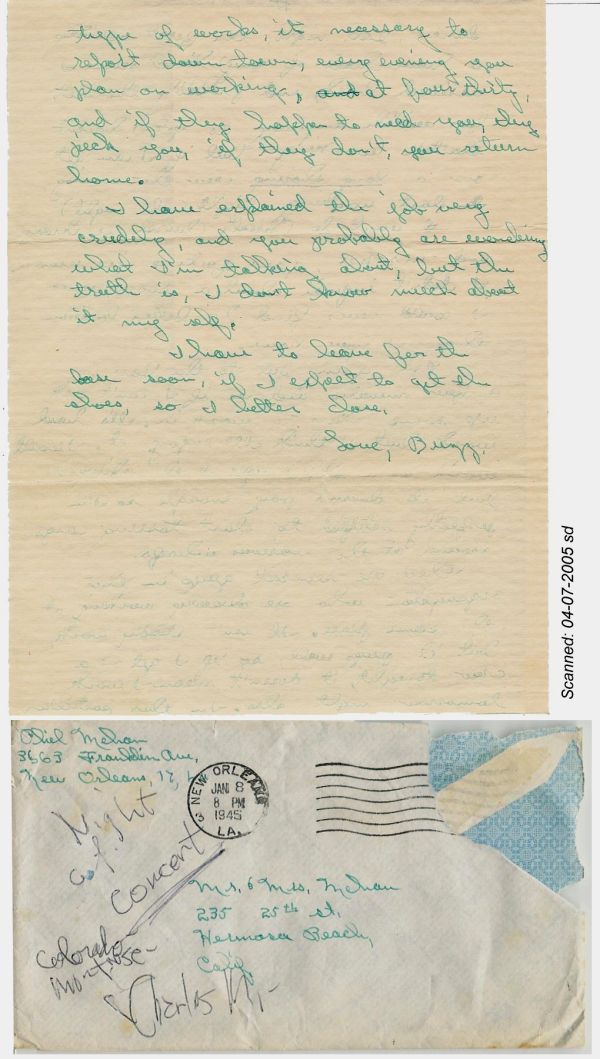 type of works, it necessary to
report down town, every evening you
plan on working, and at four thirty,
and if they happen to need you, they
pick you, if they don't, you return
home.
I have explained the job very
crudely, and you probably are wondering
what I'm talking about, but the
truth is, I don't know much about
it my self.
I have to leave for the
base soon, if I expect to get the
shoes, so I better close.
Love, Buzz.
Scanned: 04-07-2005 sd
3663 Franklin Ave,
New Orleans, 17, L
NEW ORLEANS
JAN 8
8 PM
1945
LA.
Night
of
Concert
Mr. & Mrs.
235 25th st,
Hermosa Beach,
Calif.
Colorado
Montrose-
Charles